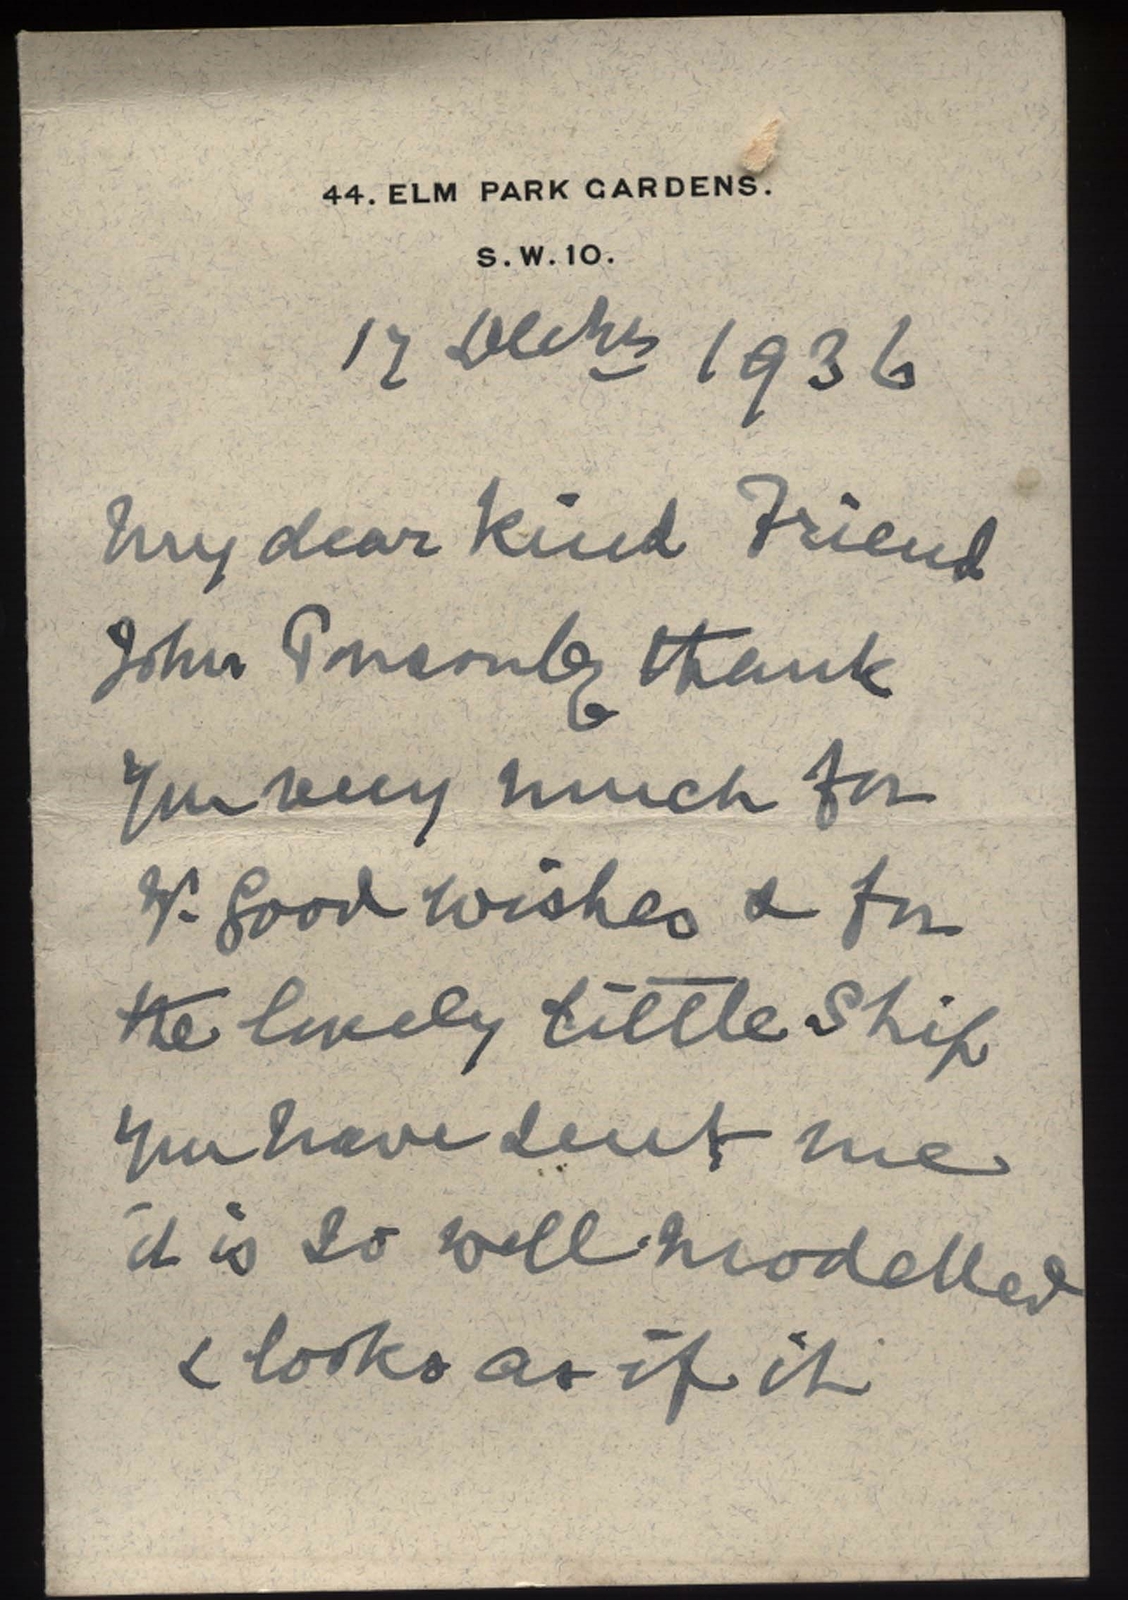 44. ELM PARK GARDENS.
S.W.10.
17 Decbr 1936
My dear kind Friend
John Ponsonby thank
you very much for
yr. good wishes & for
the lovely little Ship
you have sent me
it is so well modelled
& looks as if it